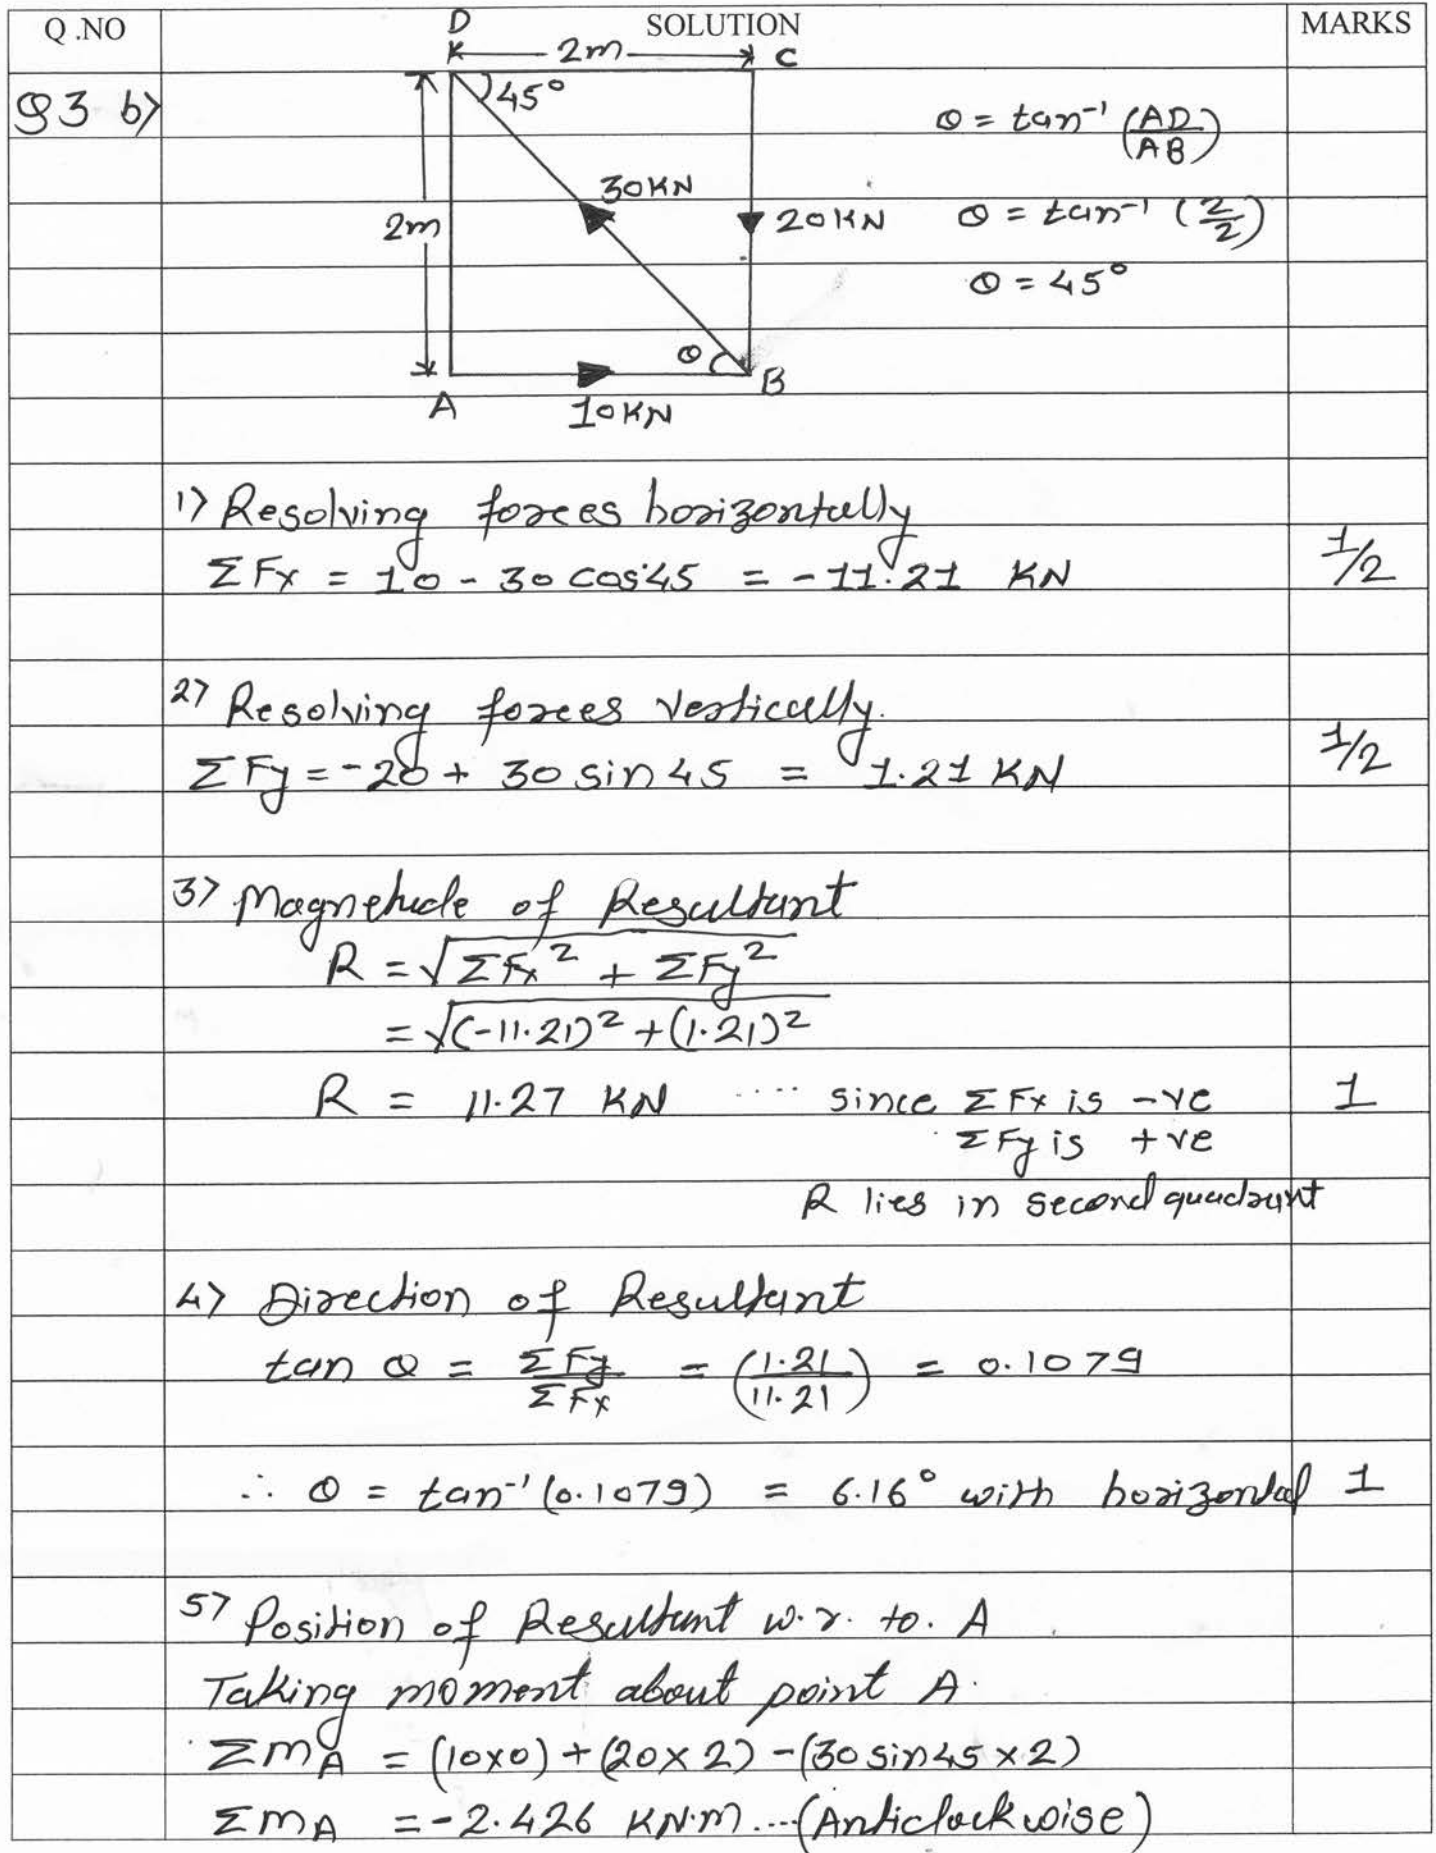 Q .NO SOLUTION MARKS
D
2m C
Q3 b)
45°
θ = tan⁻¹ (AD/AB)
30KN
2m 20KN θ = tan⁻¹ (2/2)
θ = 45°
θ B
A 10KN
1) Resolving forces horizontally
ΣFx = 10 - 30 cos45 = -11.21 KN 1/2
2) Resolving forces vertically.
ΣFy = -20 + 30 sin 45 = 1.21 KN 1/2
3) Magnetude of Resultant
R = √ΣFx² + ΣFy²
= √(-11.21)² + (1.21)²
R = 11.27 KN .... since ΣFx is -ve 1
ΣFy is +ve
R lies in second quadrant
4) Direction of Resultant
tan θ = ΣFy/ΣFx = (1.21/11.21) = 0.1079
∴ θ = tan⁻¹(0.1079) = 6.16° with horizontal 1
5) Position of Resultant w.r. to. A
Taking moment about point A.
ΣMA = (10x0) + (20 x 2) - (30 sin45 x 2)
ΣMA = -2.426 KN.m ....(Anticlockwise)